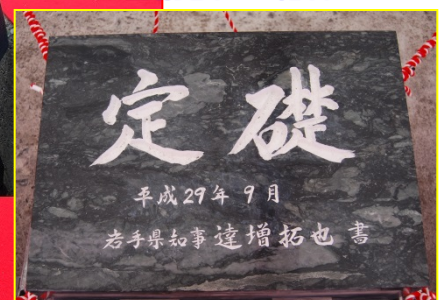 定礎
平成29年9月
岩手県知事 達増拓也 書